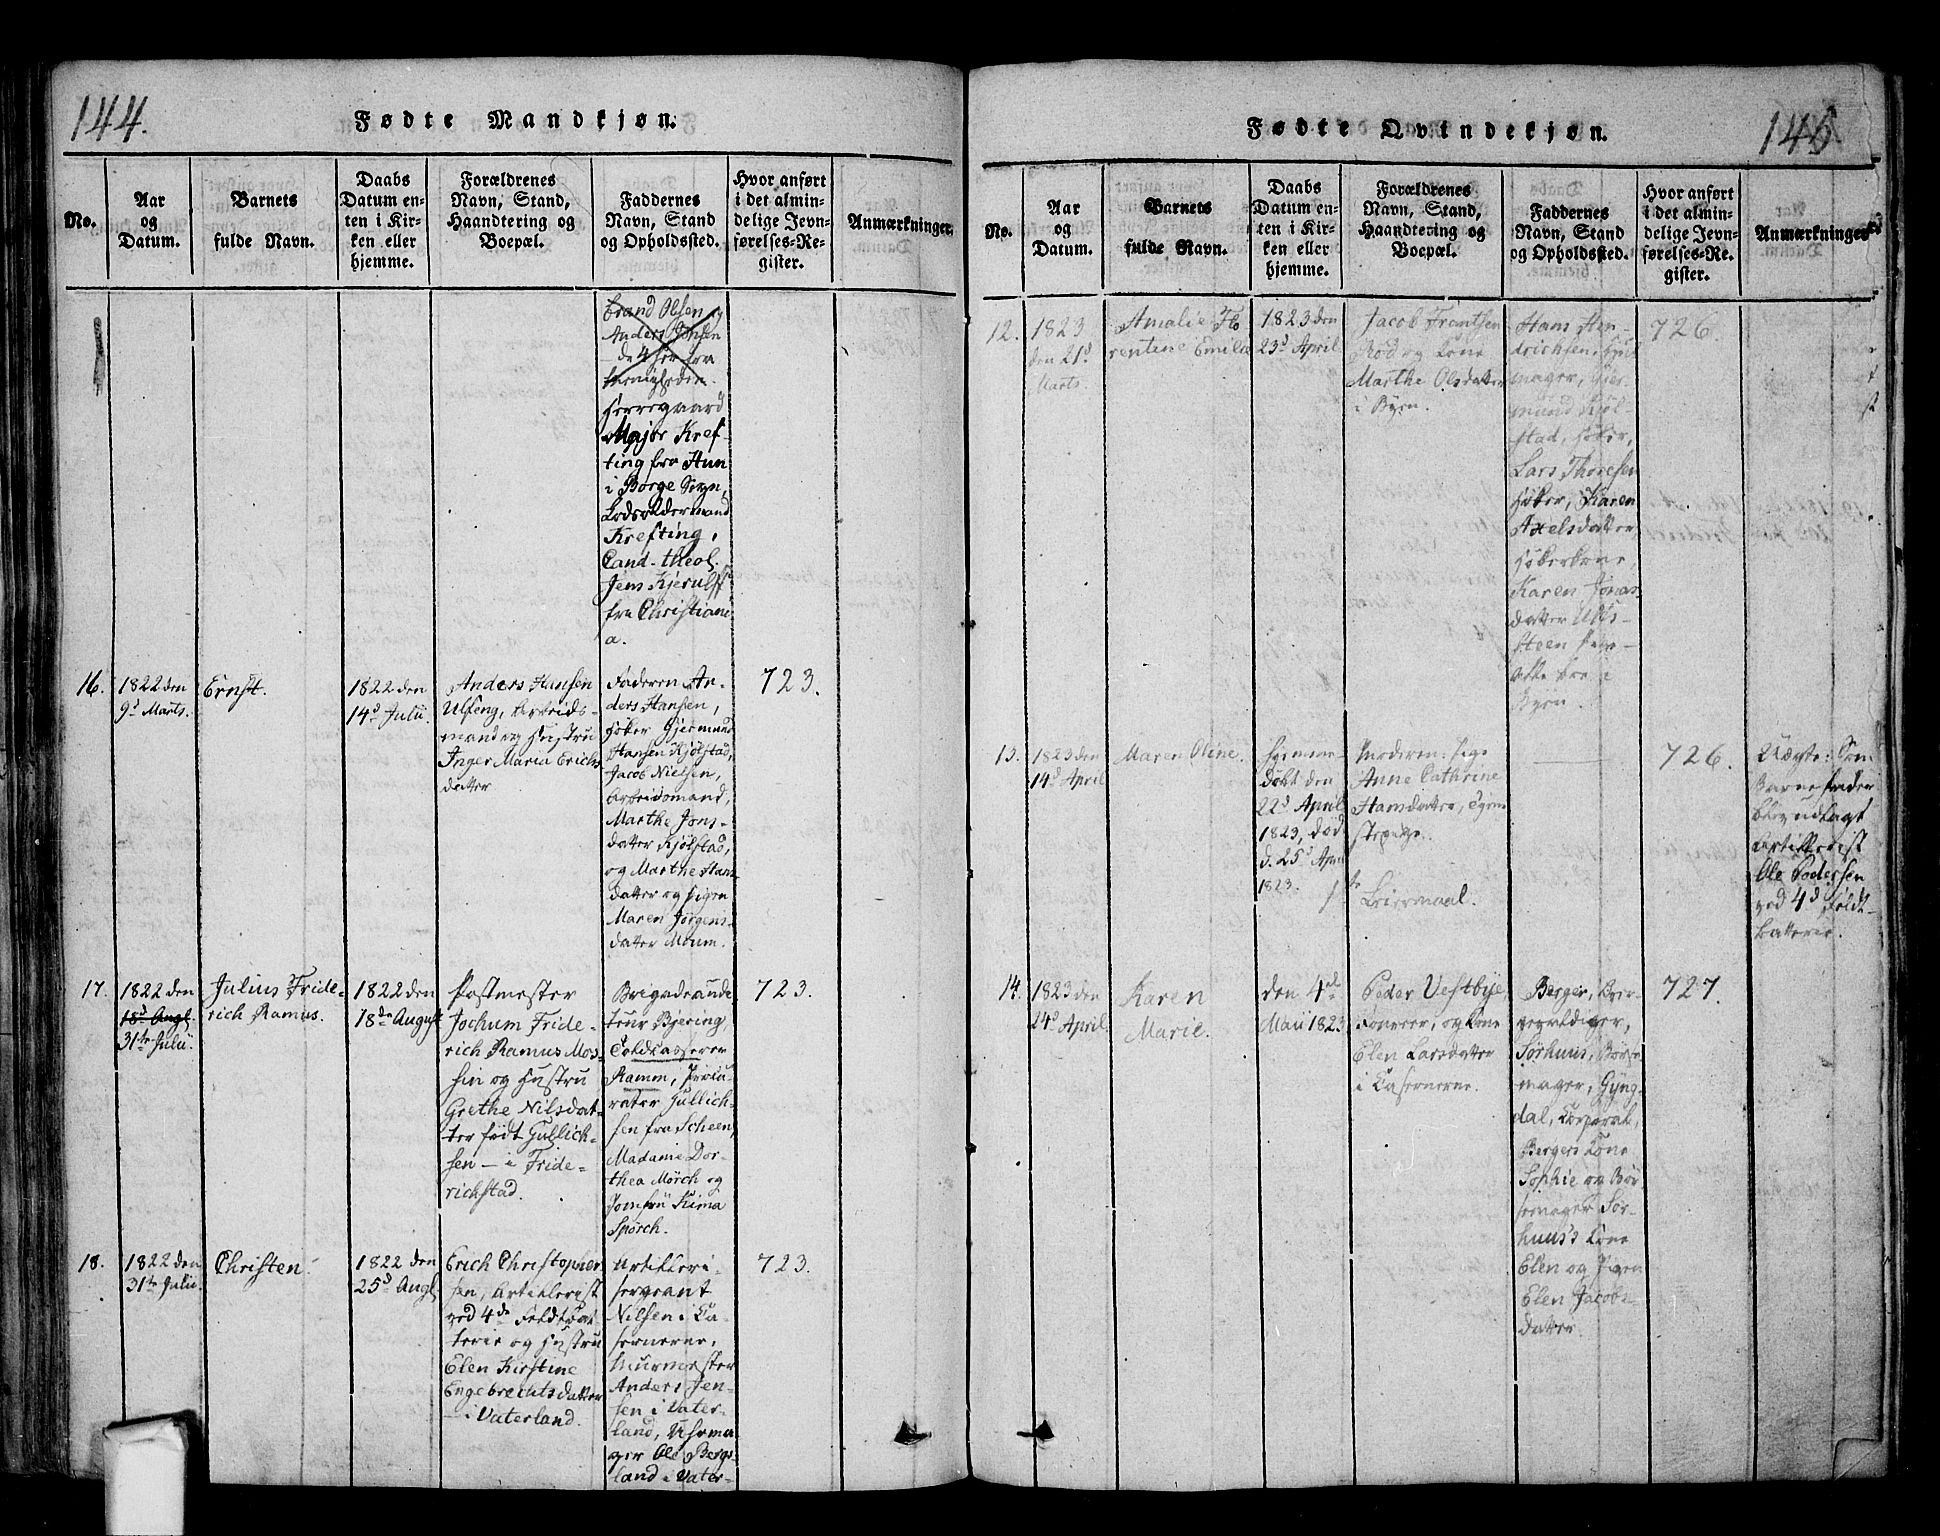 144.
Fødte Mandkjøn.
No.
Aar
og
Datum.
Barnets
fulde Navn.
Daabs
Datum en-
ten i Kir-
ken eller
hjemme.
Forældrenes
Navn, Stand,
Haandtering og
Boepæl.
Faddernes
Navn, Stand
og Opholdssted.
Hvor anført
i det almin-
delige Jevn-
førelses-Re-
gister.
Anmærkninger.
Olsen og
Anders
Herregaard
Major Kref-
ting fra Hun
i Borge Sogn,
Lodsoldermand
Krefting,
Cand. theol.
Jens Kjerulff
fra Christiani
a.
16.
1822 den
9d Marts.
Ernst.
1822 den
14d Julii.
Anders Hansen
Ulfeng, Arbeids-
mand og Hustru
Inger Maria Erichs
datter
Faderen An-
ders Hansen,
Høker Gjermund
Hansen Kjølstad,
Jacob Nielsen,
Arbeidsmand,
Marthe Jons-
datter Kjølstad,
og Marthe Hans
datter og Pigen
Maren Jørgens-
datter Moum.
723.
17.
1822 den
18d Augl.
31te Julii.
Julius Fride-
rich Ramus.
1822 den
18de August
Postmester
Jochum Fride-
rich Ramus Mos-
sin og Hustru
Grethe Nilsdat-
ter født Gullich-
sen – i Fride-
richstad.
Brigadeaudi
teur Bjering,
Toldkasserer
Ramm, Procu-
rator Gullich-
sen fra Scheen,
Madame Dor-
thea Mørch og
Jomfru Kima
Spørch.
723.
18.
1822 den
31te Julii.
Christen.
1822 den
25d Augl.
Erich Christopher
sen, Artillerist
ved 4de Feldtbat
terie og Hustru
Elen Kirstine
Engebrechtsdatter
– i Vaterland.
Artilleri-
sergeant
Nilsen i Ca-
sernerne,
Muurmester
Anders Jen-
sen i Vater-
land, Uhrma
ger Ole Bergs-
land i Vater-
723.
Fødte Qvindekjøn.
145.
No.
Aar
og
Datum.
Barnets
fulde Navn.
Daabs
Datum en-
ten i Kir-
ken eller
hjemme.
Forældrenes
Navn, Stand,
Haandtering og
Boepæl.
Faddernes
Navn, Stand
og Opholdssted.
Hvor anført
i det almin-
delige Jevn-
førelses-Re-
gister.
Anmærkninger
12.
1823
den 21d
Marts.
Amalie Flo
rentine Emilie
1823 den
23d April
Jacob Frantsen
Rød og Kone
Marthe Olsdatter
i Byen.
Hans Hen-
drichsen, Hjul
mager, Gjer-
mund Kjøl-
stad, Høker,
Lars Thoresen
Høker, Karen
Axelsdatter,
Høkerkone,
Karen Jonas
datter
alle bre i
Byen.
726
13.
1823 den
14d April
Maren Oline.
Hjemme-
døbt den
22d April
1823, død
d. 25d April
1823.
Moderen: Pige
Anne Cathrine
Hansdatter, Tjene
stepige.
1te
Leiermaal.
726.
Uægte: Som
Barnefader
blev udlagt
Artillerist
Ole Pedersen
ved 4d Feldt-
batterie.
14.
1823 den
24d April.
Karen
Marie.
den 4de
Maii 1823
Peder Vestbye,
og Kone
Elen Larsdatter
i Casernerne.
Berger,
Sørhuus, Børse
mager, Gyng-
dal, Corporal,
Bergers Kone
Sophie og Bør
semager Sør-
huus's Kone
Elen og Pigen
Elen Jacobs-
datter.
727.